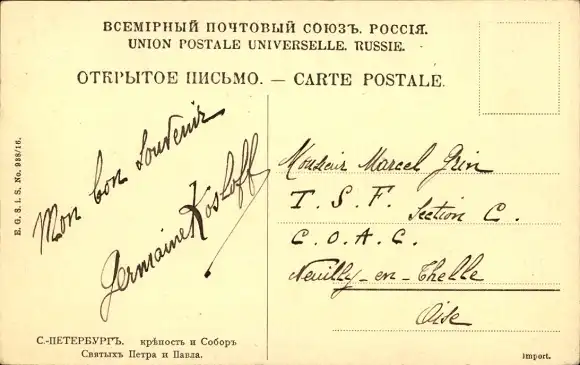 ВСЕМІРНЫЙ ПОЧТОВЫЙ СОЮЗЪ. РОССІЯ.
UNION POSTALE UNIVERSELLE. RUSSIE.
ОТКРЫТОЕ ПИСЬМО. — CARTE POSTALE.
E. G. S. I. S. No. 988/16.
Mon bon Souvenir
Germaine Kosloff
Monsieur Marcel Grin
T. S. F. Section C.
C. O. A. C.
Neuilly-en-Thelle
Oise
С.-ПЕТЕРБУРГЪ. крѣпость и Соборъ
Святыхъ Петра и Павла.
Import.